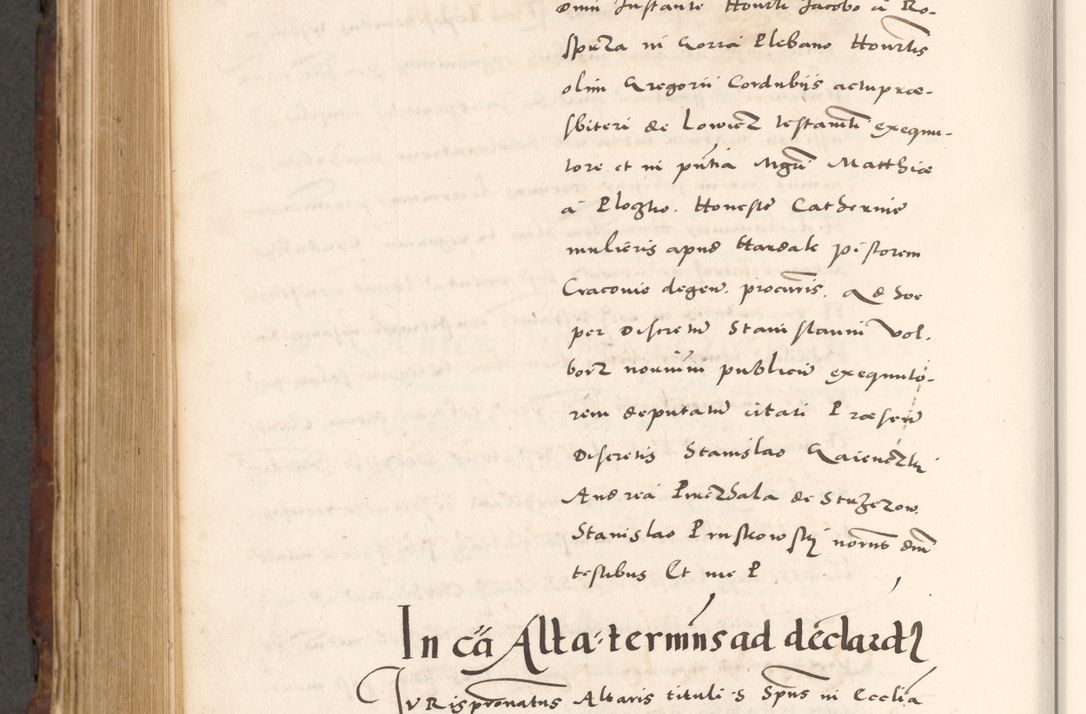 Dmni Instante Honorli Jacobo a Ro-
spuza in Gorra Plebano Honorlis
olim Gregorii Cordubijs actupræ-
sbiteri de Lowicz testamti exequu-
tore et in pntia Mgri Matthiæ
a Ploczko. Honeste Catherine
mulieris apud Handale pistorem
Cracovie degen. procuris. Ad hoc
per Discretum Stanislaum Vol-
borz novium publicum exequuto-
rem deputatum citati Præsen
Discretis Stanislao
Andrea de Strzezow.
Stanislao Pruskowskj noriis dm
testibus Et me P
In ca Alta: termns ad declardz
Iuris pronatus Altaris tituli S Spns in Ecclia